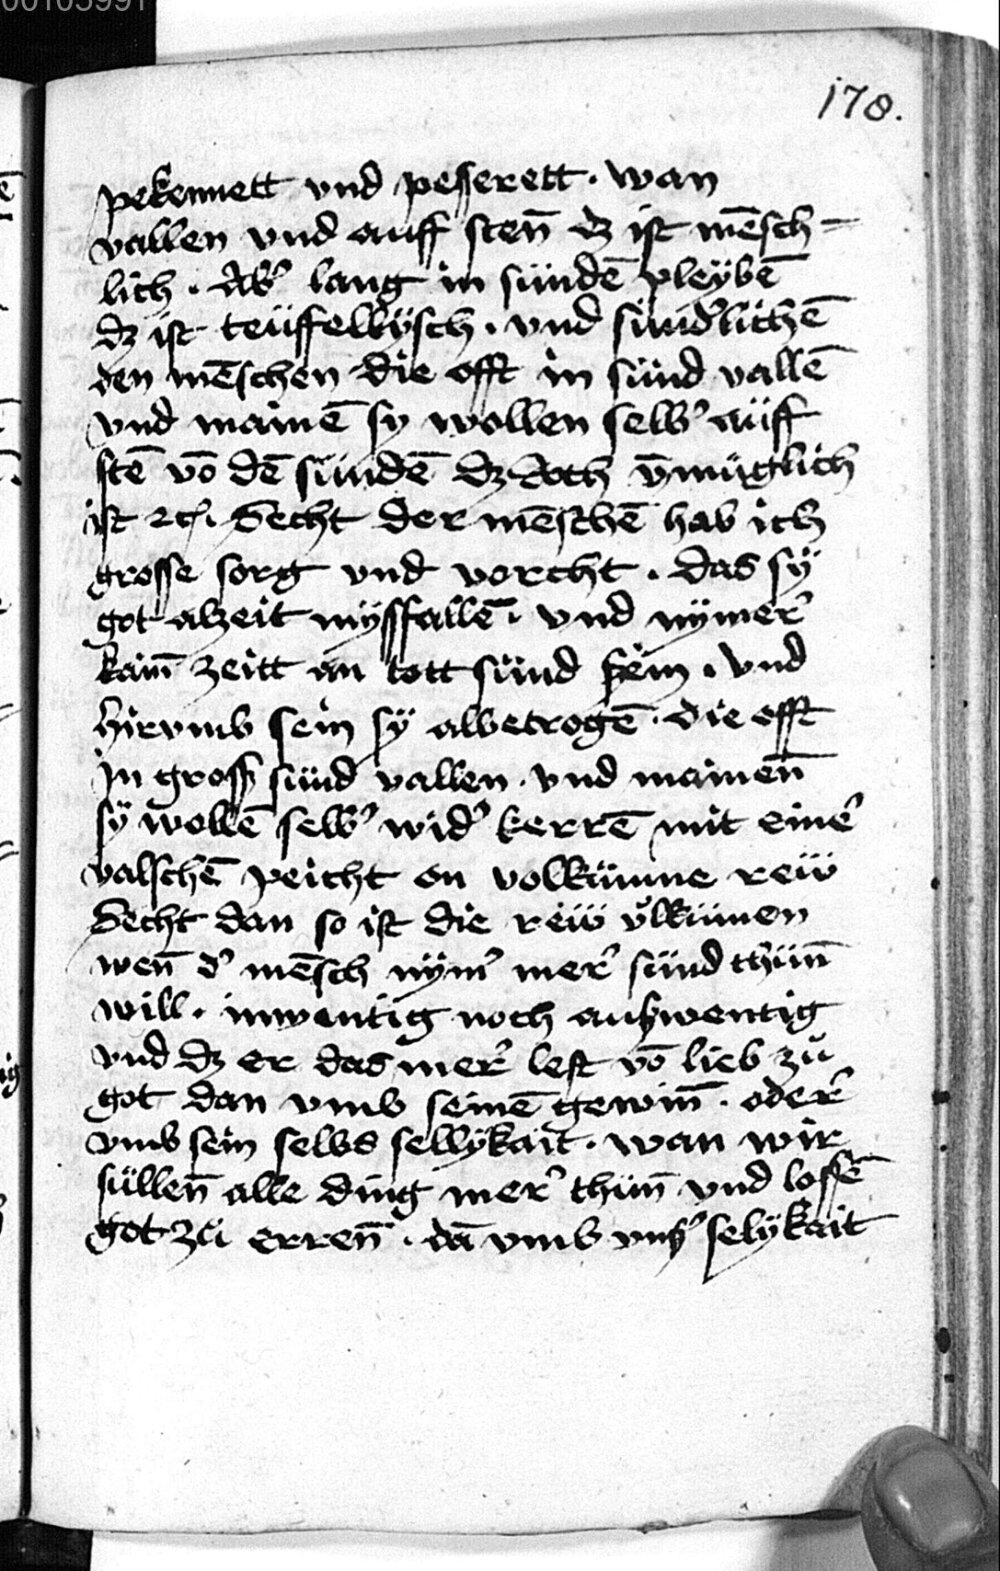 00105991
178.
pekennett vnd pesserett · wan
vallen vnd auff sten̄ dz ist mēsch=
lich · Ab᾽ lang in sündē pleÿbē
dz ist teüffellÿsch · vnd sünd᾽lichē
den mēschen die offt in sünd vallē
vnd mainē sy wollen selb᾽ aüff
stē vō dē sündē dz doch vmüglich
ist Secht der mēschē hab ich
grosse sorg vnd vorcht · das sÿ
got alzeit mÿssfallē · vnd nÿmer᾽
kain̄ zeitt an tott sünd sein · vnd
hirvmb sein sÿ albetrogē · die offt
in gross sünd vallen · vnd mainen̄
sÿ wollē selb᾽ wid᾽ kerrē mit einer᾽
valschē peicht on volkümne reẅ
Secht dan so ist die reẅ volkümen
wen̄ d᾽ mēsch nÿm᾽ mer᾽ sünd thün̄
will · inwentig noch auswentig
vnd dz er das mer᾽ lest vō lieb zü
got dan vmb seinē gewin̄ · oder᾽
vmb sein selbs sellÿkait · wan wir
süllen̄ alle ding mer᾽ thün̄ vnd lossē
got zü erren̄ · dā vmb vns᾽ selÿkait